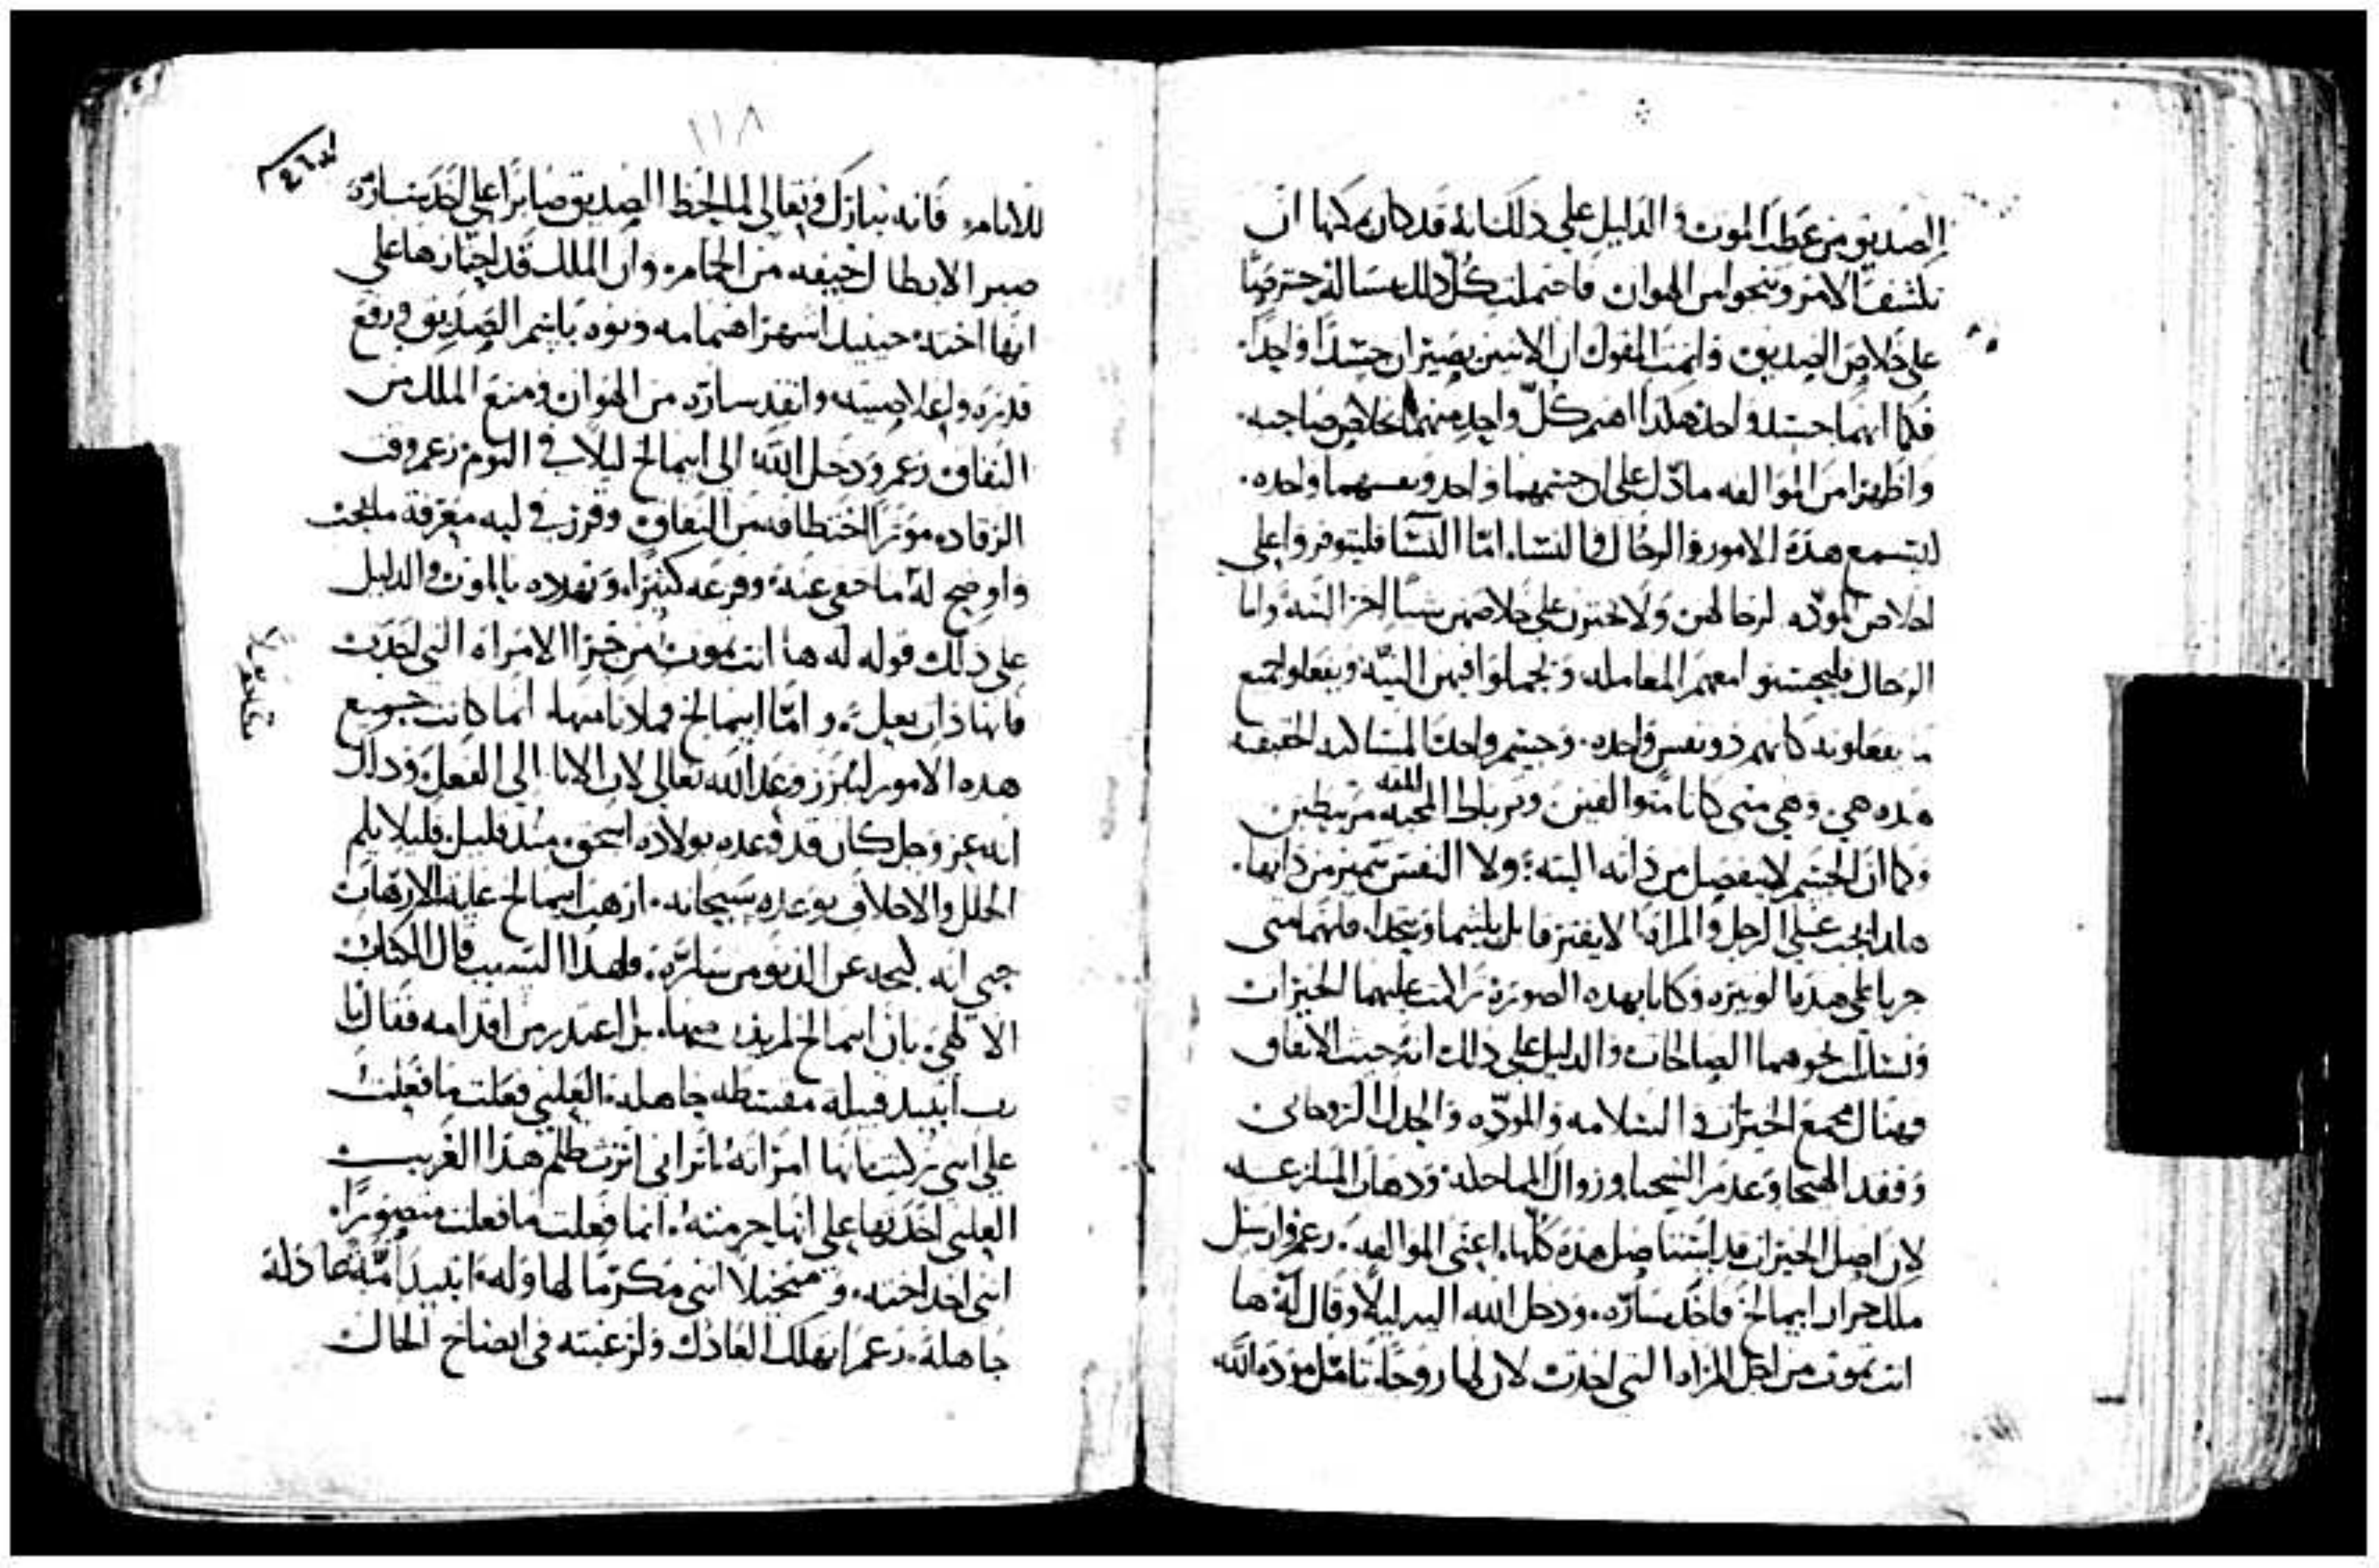 الصديق من عطب الموت والدليل على ذلك انه قد كان يمكنها ان
تكشف الامر وتنجوا من الهوان فاحتملت كل ذلك بسالة حترصا
على خلاص الصديق واتمت القول ان الاثنين يصيران جسدا واحدا.
فكما انهما جسد واحد هكذا اهتم كل واحد منهما بخلاص صاحبه.
واظهرا من الموالفه ما دل على ان جسمهما واحد ونفسهما واحده.
ليتسمع هذه الامور الرجال والنسا. امّا النسا فليتوفروا على
اخلاص المودّه لرجالهن ولا يحترن على خلاصهن شيا اخرا البتة واما
الرجال فليحسنوا معهم المعامله ويجملوا فيهن النيّة ويفعلوا جميع
ما يفعلونه كانهم ذو نفس واحده. وجسم واحد المساكنه الحقيقه
هذه هي وهي متى كانا متوالفين وبرباط المحبه مرتبطين
وكما ان الجسم لا ينفصل من ذاته البته ولا النفس تتميز من ذاتها.
هكذا يجب على الرجل والمراة لا يفترقا بل يلتيما ويتحدا. فانهما متى
جريا على هذه الوتيره وكانا بهذه الصورة تراكمت عليهما الخيرات
ونشات نحوهما الصالحات والدليل على ذلك انه حيث الاتفاق
فهناك مجمع الخيرات والسلامه والمودّه والجدل الروحاني
وفقد الهيجا وعدم الشحنا وزوال المماحكة وذهاب المنازعه
لان اصل الخيرات قد استاصل هذه كلها. اعني الموالفه. زعم وارسل
ملك جرار ابيمالخ فاخذ سارّه. ودخل الله اليه ليلًا وقال له ها
انت تموت من اجل المراه التي اخذت لان لها روحًا. تامّل مودة الله
١١٨
للانام. فانه تبارك وتعالى لما لحظ الصديق صابرًا على اخذ سارّة
صبر الابطال خيفه من الحمام. وان الملك قد اختارها على
انها اخته. حينيذ اشهر اهتمامه ونوه باسم الصديق ورفع
قدره واعلا صيته وانقذ سارّه من الهوان ومنع الملك من
النفاق زعم ودخل اللّه الى ابيمالخ ليلا في النوم زعم وقت
الرقاد. موثرًا اختطافه من النفاق وقرر في لبه معرفة ما يجب
واوضح له ما خفي عنه. وفزعه كثيرًا. وتهدده بالموت والدليل
على ذلك قوله له ها انت تموت من جرا الامراه التي اخذت
فانها ذات بعل. وامّا ابيمالخ فلا دنا منها. انما كانت جميع
هذه الامور ليبرز وعد اللّه تعالى لابي الابا الى الفعل وذلك
انه عز وجل كان قد وعده بولاده اسحق منذ قليل فليلا يلم
الخلل والاخلاف بوعده سبحانه. ارهب ابيمالخ غاية الارهاب
حتى انه ليحد عن الدنو من سارّة. فلهذا السبب قال الكتاب
الالهي. بان ابيمالخ لم يدن منها. بل اعتذر من اقدامه فقال يا
رب أتبيد قبيلة مقسطه جاهلة. العلني فعلت ما فعلت
على انني تركت بانها امراته. اتراني اثرت ظلم هذا الغريب
العلني اخذتها على انها حرمته. انما فعلت ما فعلت متصورًا.
انني اخذ اخته. و متخيلا انني مكرمًا لها وله. اتبيد أمّة عادلة
جاهلة. زعم اتهلك العادل ولرغبته في ايضاح الحال